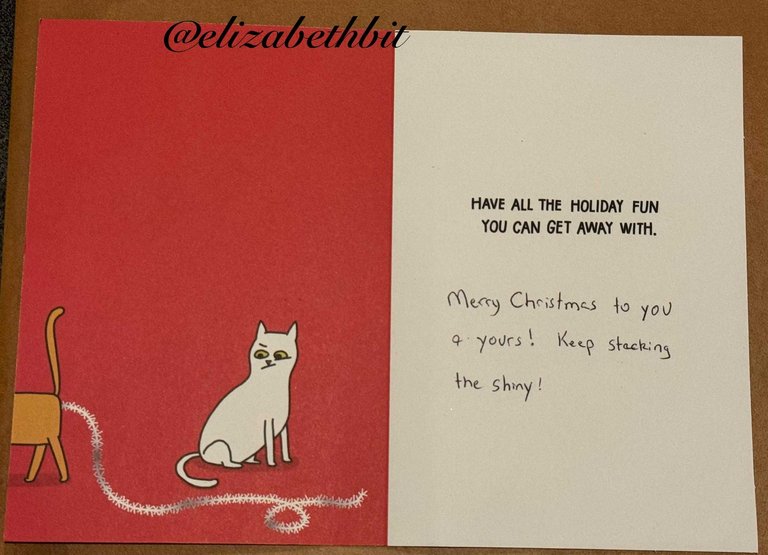 @elizabethbit
HAVE ALL THE HOLIDAY FUN
YOU CAN GET AWAY WITH.
Merry Christmas to you
& yours! Keep stacking
the shiny!